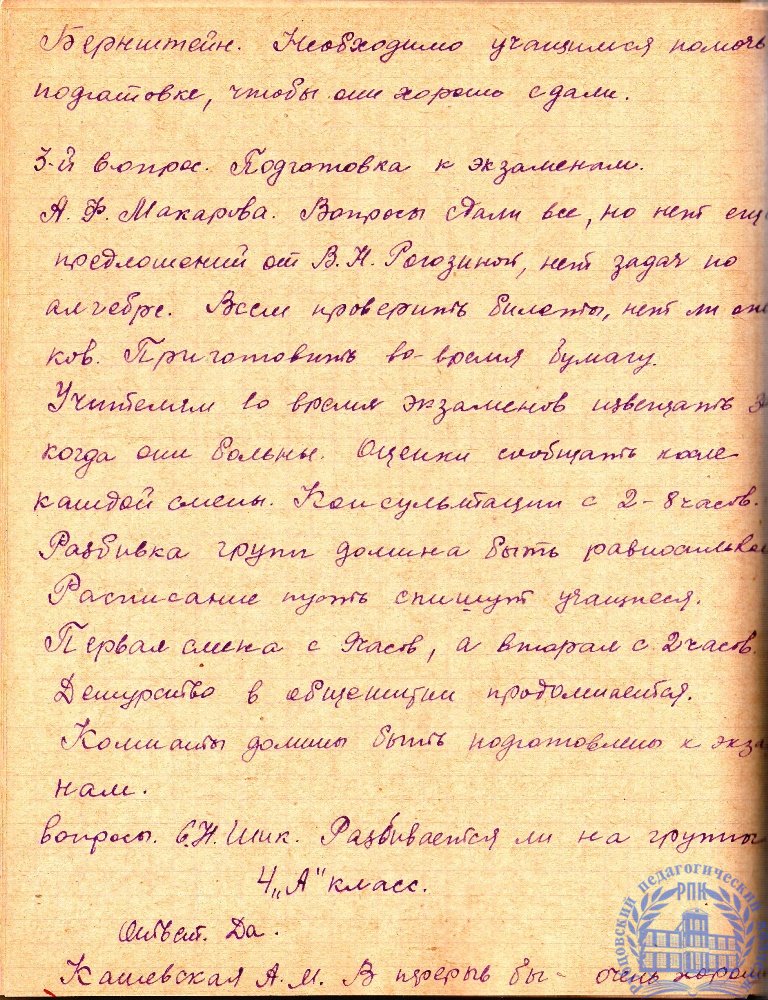 Бернштейн. Необходимо учащимся помочь
подготовке, чтобы они хорошо сдали.
3-й вопрос. Подготовка к экзаменам.
А. Ф. Макарова. Вопросы сдали все, но нет ещ
предложений от В. Н. Рогозиной, нет задач по
алгебре. Всем проверить билеты, нет ли
ков. Приготовить во-время бумагу.
Учителям во время экзаменов извещать
когда они больны. Оценки сообщать после
каждой смены. Консультации с 2-8 часов.
Разбивка групп должна быть
Расписание пусть спишут учащиеся.
Первая смена с 9 часов, а вторая с 2 часов.
Дежурство в общежитии продолжается.
Комнаты должны быть подготовлены к экза
нам.
вопросы. С. Н. Шик. Разбивается ли на группы
4 „А" класс.
Ответ. Да.
Кашевская А. М. В перерыв бы - очень
педагогический
РПК